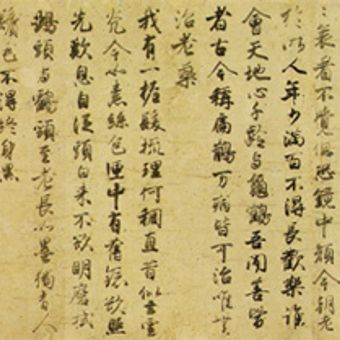 〻衰看不覺但恐鏡中顔今朝老
於昨人年少滿百不得長歡樂誰
會天地心千齡与龜鶴吾聞善醫
者古今稱扁鵲万病皆可治唯無
治老藥
我有一握髮梳理何稠直昔似玄雲
光今如素絲色匣中有舊鏡欲照
先歎息自從頭白来不欲明磨拭
鵶頭与鶴頭至老長如墨獨有人
鬢毛不得終身黑